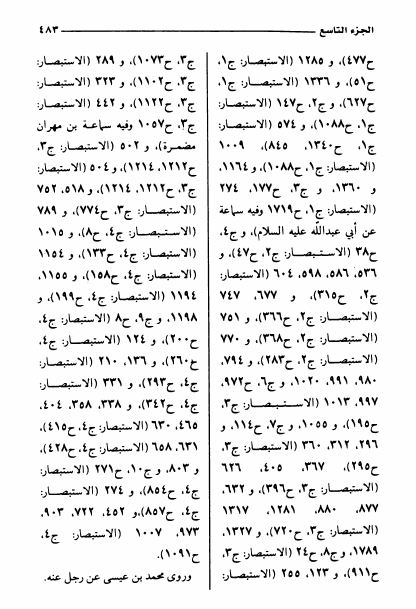 الجزء التاسع ٤٨٣
ح٤٧٧)، و ١٢٨٥ (الاستبصار: ج١،
ح٥١)، و ١٣٣٦ (الاستبصار: ج١،
ح٦٢٧)، و ج٢، ح١٤٧ (الاستبصار:
ج١، ح١٠٨٨)، و ٥٧٤ (الاستبصار:
ج١، ح١٣٤٠، ٨٤٥)، ١٠٠٩
(الاستبصار: ج١، ح١٠٨٨)، و ١١٦٤،
و ١٣٦٠، و ج٣، ح١٧٧، ٢٧٤
(الاستبصار: ج١، ح١٧١٩ وفيه سماعة
عن أبي عبدالله عليه السلام)، و ج٤،
ح٣٨ (الاستبصار: ج٢، ح٤٧)، و
٥٣٦، ٥٨٦، ٥٩٨، ٦٠٤ (الاستبصار:
ج٢، ح٣١٥)، و ٦٧٧، ٧٤٧
(الاستبصار: ج٢، ح٣٦٦)، و ٧٥١
(الاستبصار: ج٢، ح٣٦٨)، و ٧٧٠
(الاستبصار: ج٢، ح٢٨٣)، و ٧٩٤،
٩٨٠، ٩٩١، ١٠٢٠، و ج٦، ح٩٧٢،
٩٩٧، ١٠١٣ (الاستبصار: ج٣،
ح١٩٥)، و ١٠٥٥، و ج٧، ح١١٤، و
٢٩٦، ٣١٢، ٣٦٠ (الاستبصار: ج٣،
ح٢٩٥)، ٣٦٧، ٤٠٥، ٦٢٦
(الاستبصار: ج٣، ح٣٩٦)، و ٦٣٢،
٨٧٧، ٨٨٠، ١٢٨١، ١٣١٧
(الاستبصار: ج٣، ح٧٢٠)، و ١٣٢٧،
١٧٨٩، و ج٨، ح٢٤ (الاستبصار: ج٣،
ح٩١١)، و ١٢٣، ٢٥٥ (الاستبصار:
ج٣، ح١٠٧٣)، و ٢٨٩ (الاستبصار:
ج٣، ح١١٠٢)، و ٣٢٣ (الاستبصار:
ج٣، ح١١٢٢)، و ٤٤٢ (الاستبصار:
ج٣، ح١٠٥٧ وفيه سماعة بن مهران
مضمرة)، و ٥٠٢ (الاستبصار: ج٣،
ح١٢١٢، ١٢١٤)، و ٥٠٤ (الاستبصار:
ج٣، ح١٢١٢، ١٢١٤)، و ٥١٨، ٧٥٢
(الاستبصار: ج٣، ح٧٧٤)، و ٧٨٩
(الاستبصار: ج٤، ح٨)، و ١٠١٥
(الاستبصار: ج٤، ح١٣٣)، و ١١٥٤
(الاستبصار: ج٤، ح١٥٨)، و ١١٥٥،
١١٩٤ (الاستبصار: ج٤، ح١٩٩)، و
١١٩٨، و ج٩، ح٨ (الاستبصار: ج٤،
ح٢٠٠)، و ١٢٤ (الاستبصار: ج٤،
ع٢٦٠)، و ١٣٦، ٢١٠ (الاستبصار:
ج٤، ح٢٩٣)، و ٣٣١ (الاستبصار:
ج٤، ح٣٤٢)، و ٣٣٨، ٣٥٨، ٤٠٤،
٤٦٥، ٦٣٠ (الاستبصار: ج٤، ح٤١٥)،
٦٣١، ٦٥٨ (الاستبصار: ج٤، ح٤٢٨)،
و ٨٠٣، و ج١٠، ح٢٧١ (الاستبصار:
ج٤، ح٨٥٤)، و ٢٧٤ (الاستبصار:
ج٤، ح٨٥٧)،و ٤٥٢، ٧٢٢، ٩٠٣،
٩٧٣، ١٠٠٧ (الاستبصار: ج٤،
ح١٠٩١).
وروى محمد بن عيسى عن رجل عنه.